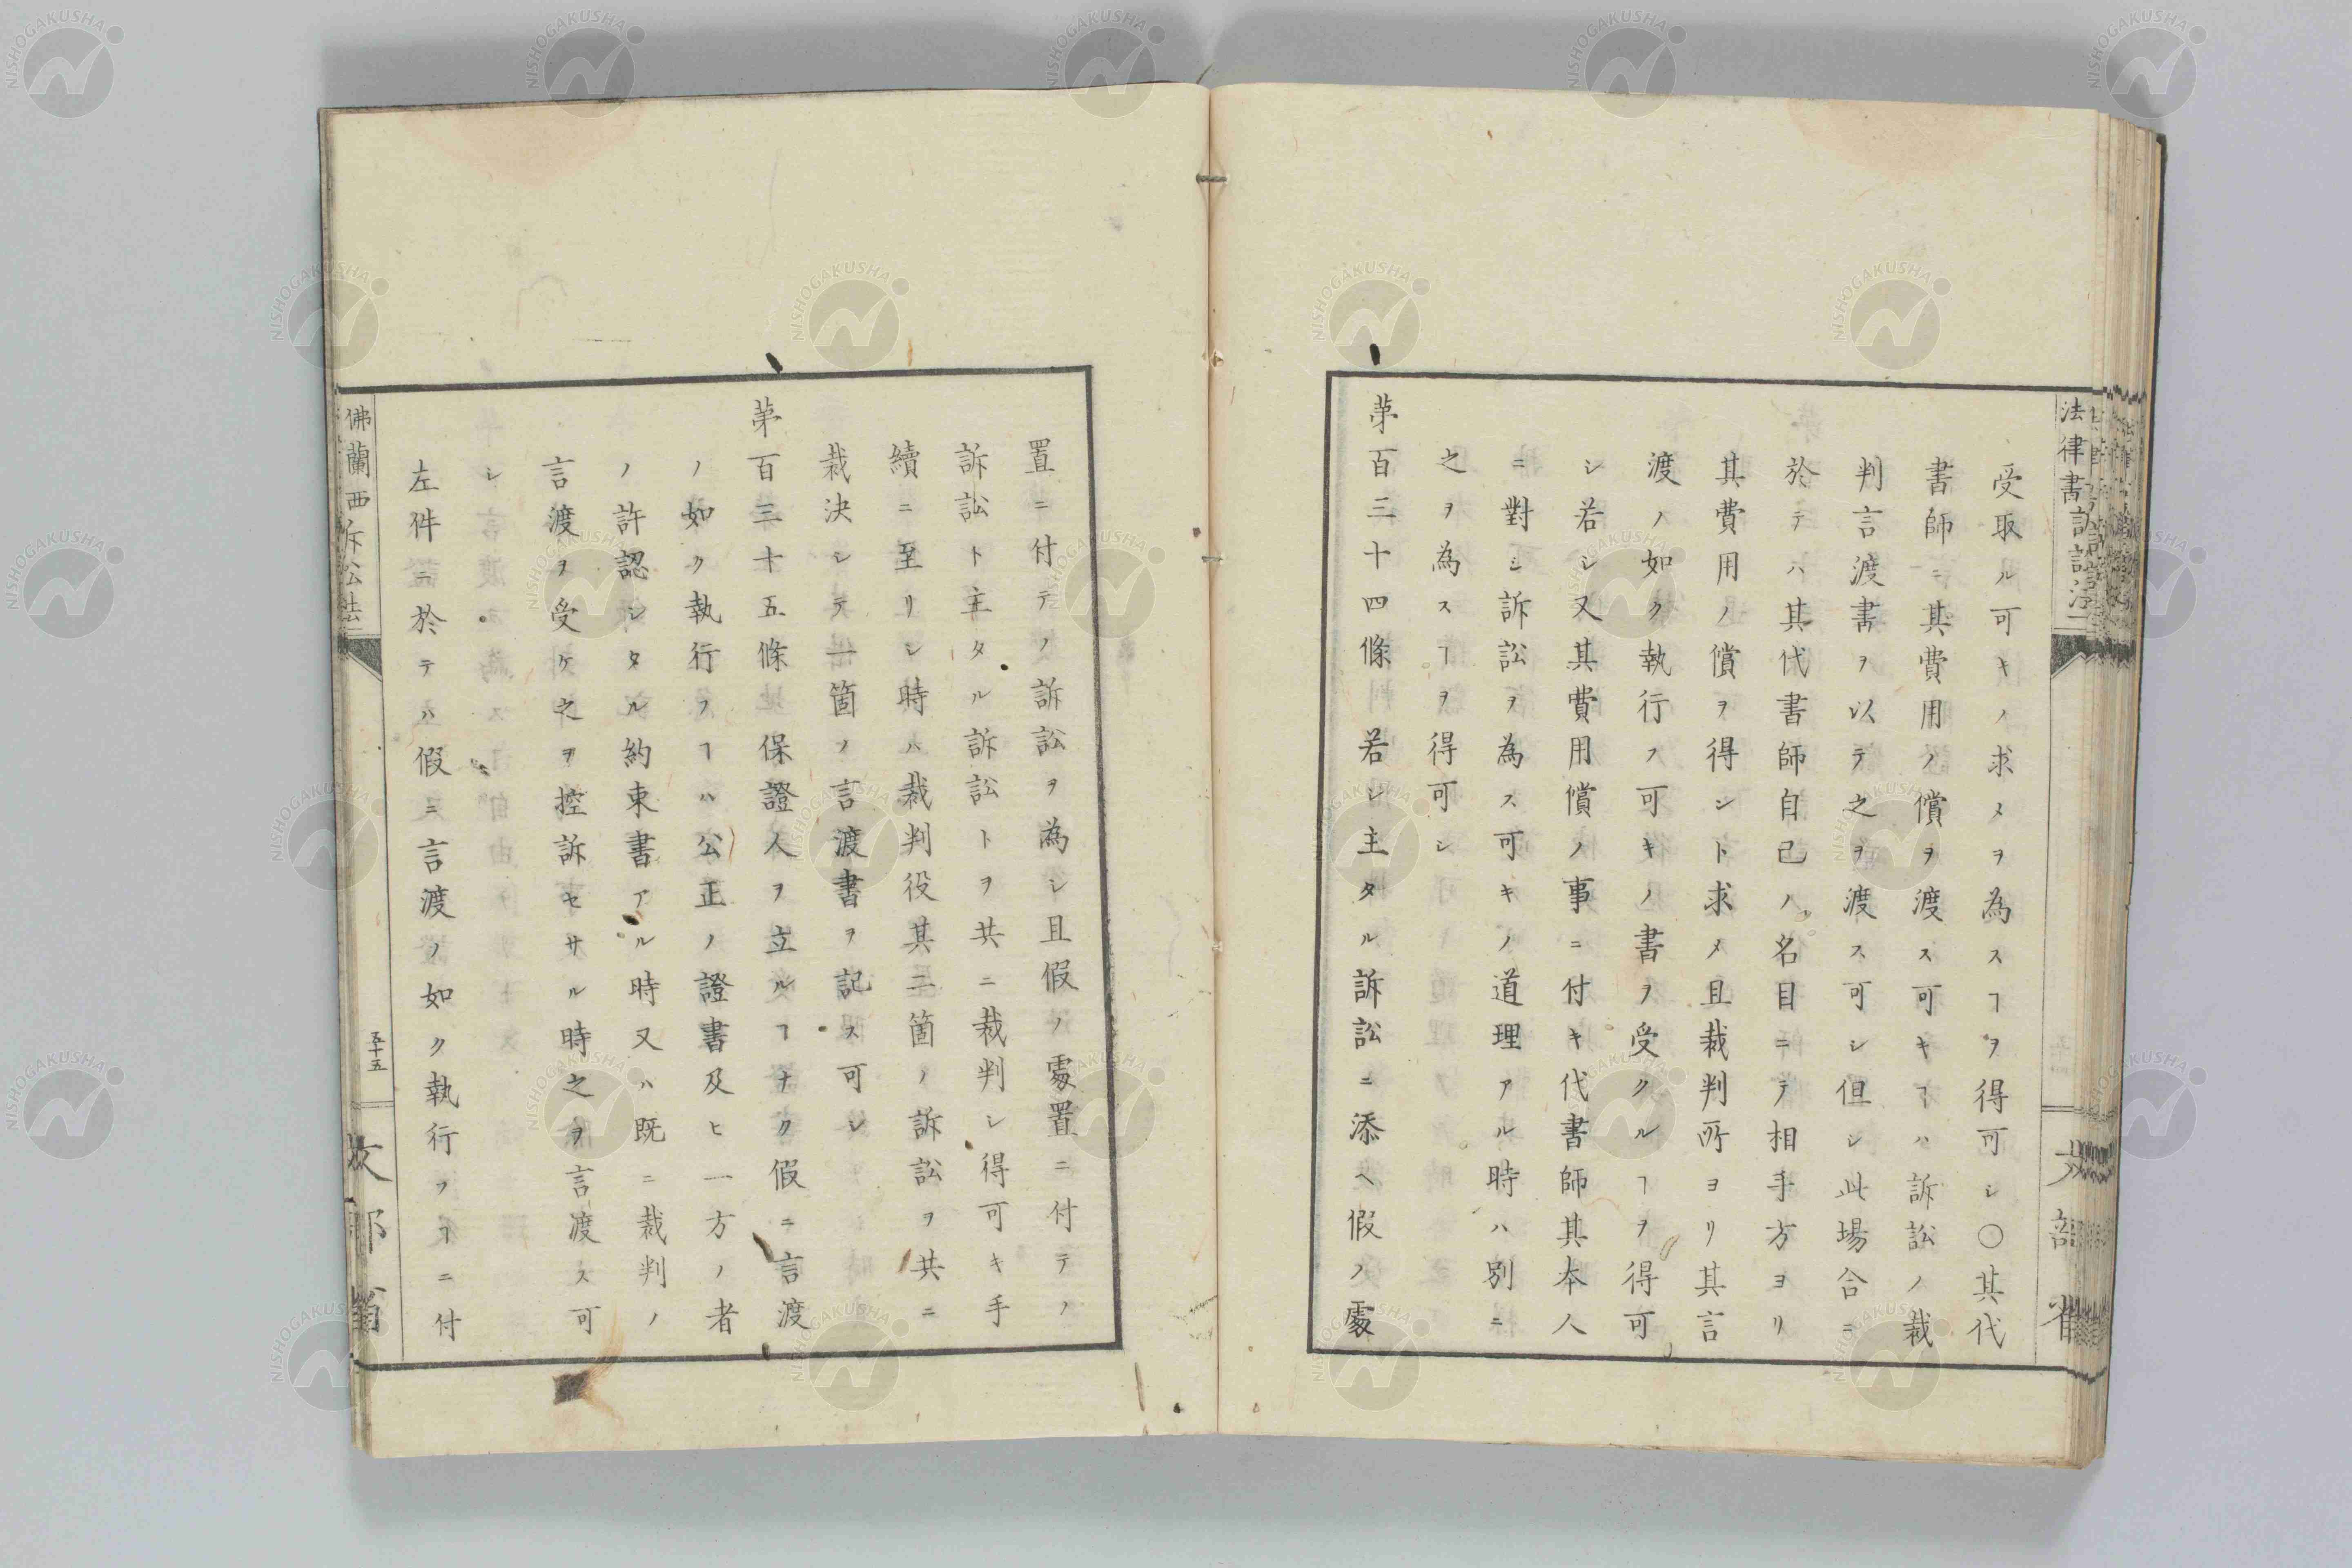 受取ル可キノ求メヲ為スヿヲ得可シ〇其代
書師ニ其費用ノ償ヲ渡ス可キヿハ訴訟ノ裁
判言渡書ヲ以テ之ヲ渡ス可シ但シ此場合ニ
於テハ其代書師自己ノ名目ニテ相手方ヨリ
其費用ノ償ヲ得ント求メ且裁判所ヨリ其言
渡ノ如ク執行フ可キノ書ヲ受クルヿヲ得可
シ若シ又其費用償ノ事ニ付キ代書師其本人
ニ對シ訴訟ヲ為ス可キノ道理アル時ハ別ニ
之ヲ為スヿヲ得可シ
苐百三十四條 若シ主タル訴訟ニ添ヘ假ノ處
置ニ付テノ訴訟ヲ為シ且假ノ處置ニ付テノ
訴訟ト主タル訴訟トヲ共ニ裁判シ得可キ手
續ニ至リシ時ハ裁判役其二箇ノ訴訟ヲ共ニ
裁決シテ一箇ノ言渡書ヲ記ス可シ
苐百三十五條 保證人ヲ立ルヿナク假ニ言渡
ノ如ク執行フヿハ公正ノ證書及ヒ一方ノ者
ノ許認シタル約束書アル時又ハ既ニ裁判ノ
言渡ヲ受ケ之ヲ控訴セサル時之ヲ言渡ス可
シ
左件ニ於テハ假ニ言渡ノ如ク執行フヿニ付
佛蘭西訴訟法一
五十五
文部省
NISHOGAKUSHA